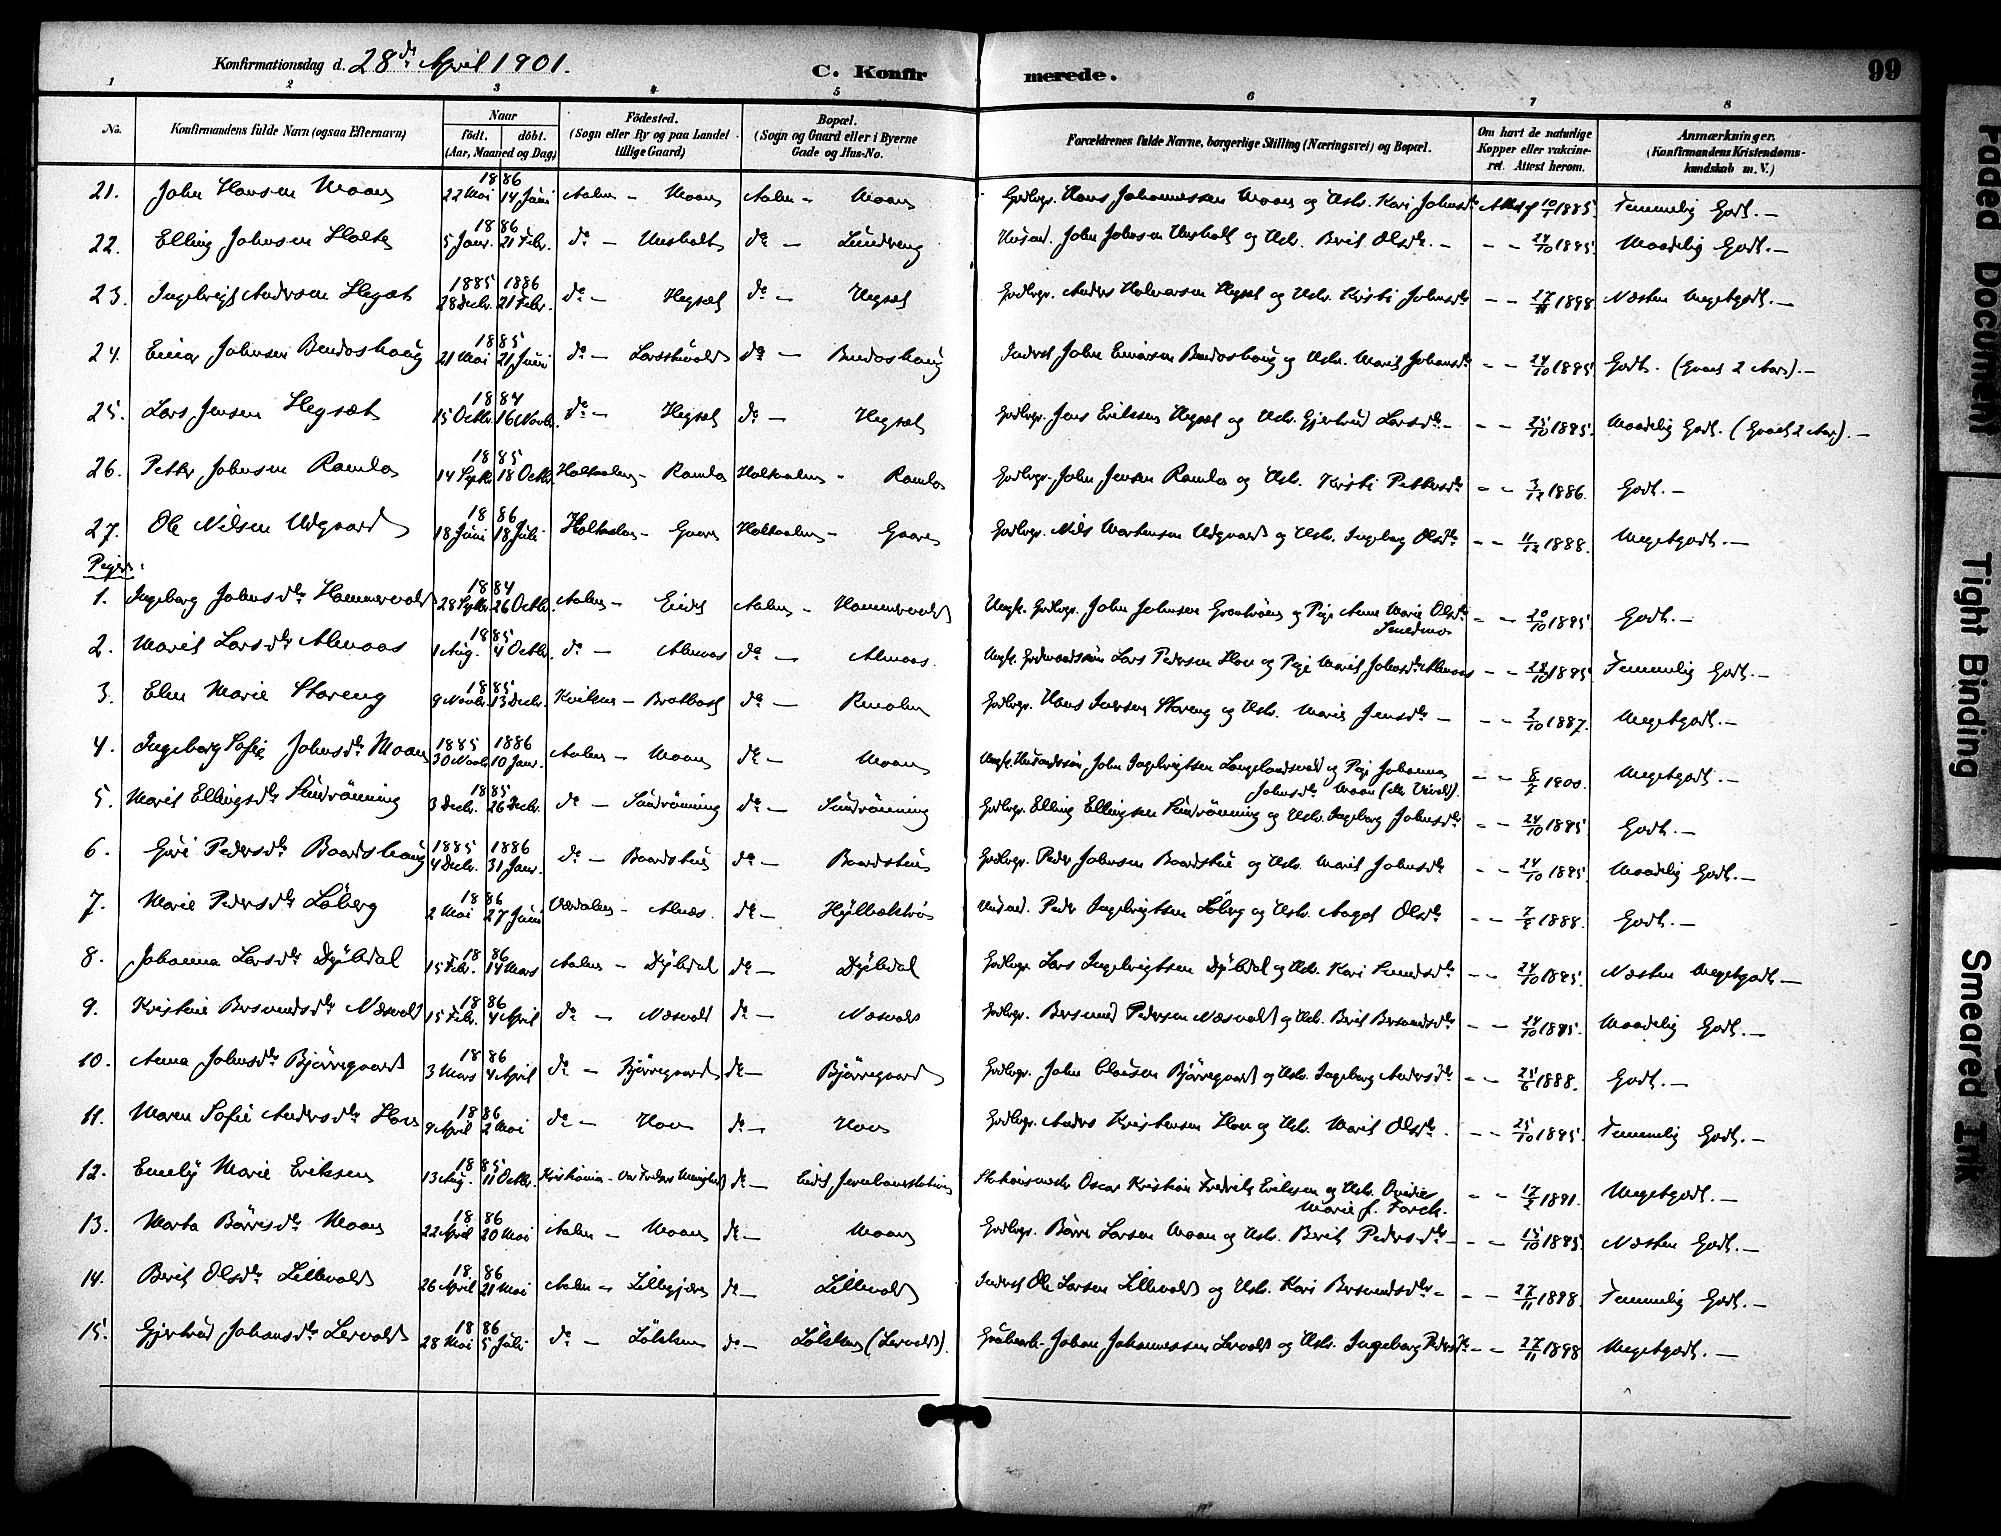 Konfirmationsdag d. 28de April 1901.
C. Konfir merede. 99
1 2 3 4 5 6 7 8
No. Konfirmandens fulde Navn (ogsaa Efternavn) Naar födt. döbt. (Aar, Maaned og Dag) Födested. (Sogn eller By og paa Landet tillige Gaard) Bopæl. (Sogn og Gaard eller i Byerne Gade og Hus-No. Forældrenes fulde Navne, borgerlige Stilling (Næringsvei) og Bopæl. Om havt de naturlige Kopper eller vakcineret. Attest herom. Anmærkninger. (Konfirmandens Kristendomskundskab m. V.)
21. John Hansen Moan 1886 22 Mai 14 Juni Aalen - Moan Aalen - Moan Gaardbrgr. Hans Johannessen Moan og Hstr. Kari Johnsdtr. Attest af 1885. Temmelig Godt. —
22. Elling Johnsen Holte 1886 5 Janr. 21 Febr. do — do — Lundveng Husmd. John Johnsen og Hstr. Berit Olsdtr. — - - 24/10 1895. Maadelig Godt. —
23. Ingebrigt Andersen Hegset 1885 1886 28 Decbr. 21 Febr. do — Hegset do — Hegset Gaardbrgr. Anders Halvorsen Hegset og Hstr. Kristi Johnsdtr - - 27/11 1898 Næsten Megetgodt. —
24. Einar Johnsen Bendoshaug 1885 21 Mai 21 Juni do — Larsshvold do — Bendoshaug Inderst John Einarsen Bendoshaug og Hstr. Marit Johansdtr - - 24/10 1895. Godt. (Gaaet 2 Aar). —
25. Lars Jensen Hegset 1884 15 Octbr. 16 Novbr. do — Hegset do — Hegset Gaardbrgr. Jens Eriksen Hegset og Hstr. Gjertrud Larsdtr. - - - 25/10 1895. Maadelig Godt. (Gaaet 2 Aar). —
26. Petter Johnsen Ramlo 1885 14 Septbr. 18 Octbr. Holtaalen - Ramlo Holtaalen - Ramlo Gaardbrgr. John Jensen Ramlo og Hstr. Kristi Pettersdtr - - 3/12 1886. Godt. —
27. Ole Nilsen Udgaard 1886 18 Juni 18 Juli Holtaalen - Gaare Holtaalen - Gaare Gaardbrgr. Nils Mortensen Udgaard og Hstr. Ingeborg Olsdtr. - - 11/12 1888. Megetgodt. —
Piger:
1. Ingeborg Johnsdtr Hammervold 1884 28 Septbr. 26 Octbr. Aalen - Eidet Aalen - Hammervold Ungk. Gaardbrgr. John Johnsen Grøntrøen og Pige Anne Marie Olsdtr Smedmo - - 20/10 1895. Godt. —
2. Marit Larsdtr Almaas 1885 1 Aug. 4 Octbr. do — Almaas do — Almaas. Ungk. Gaardmandssøn Lars Pedersen Hov og Pige Marit Johnsdtr Almaas - - 1895. Temmelig Godt. —
3. Elen Marie Storeng 1885 9 Novbr. 13 Decbr. Kvikne - Bratbast do — Renolen Gaardbrgr. Hans Iversen Storeng og Hstr. Marie Jensdtr — - - 2/10 1887. Megetgodt. —
4. Ingeborg Sofie Johnsdtr Moan 1885 1886 30 Novbr. 10 Janr. Aalen - Moan do — Moan Ungk. Husmandssøn John Ingebrigtsen Langelandsvold og Pige Johanna Johnsdtr Moan - - 1900. Megetgodt. —
5. Marit Ellingsdtr Sundrönning 1885 3 Decbr. 26 Decbr. do — Sundrönning do — Sundrönning Gaardbrgr. Elling Ellingsen Sundrönning og Hstr. Ingeborg Johnsdtr - - 24/10 1895 Godt. —
6. Guri Pedersdtr Baardshaug 1885 1886 4 Decbr. 31 Janr. do — Baardshus do — Baardshus Gaardbrgr. Peder Johnsen Baardshus og Hstr. Marit Johnsdtr - - 24/10 1895. Maadelig Godt. —
7. Marie Pedersdtr Löberg 1886 2 Mai 27 Juni Værdalen - Almæs. do — Husmd. Peder Ingebrigtsen Löberg og Hstr. Aagot Olsdtr - - 1888. Godt. —
8. Johanna Larsdtr Döjldal 1886 15 Febr. 14 Mars Aalen - Döjldal do — Döjldal Gaardbrgr Lars Ingebrigtsen Döjldal og Hstr. Kari Svendsdtr - - 24/10 1895. Næsten Megetgodt. —
9. Kristine Bersvendsdtr Næsvold 1886 15 Febr. 4 April do — Næsvold do — Næsvold Gaardbrgr. Bersvend Pedersen Næsvold og Hstr. Berit Bersvendsdtr - - 24/10 1895. Maadelig Godt. —
10. Anna Johnsdtr Bjørregaard 1886 3 Mars 4 April do — Bjørregaard do — Bjørregaard Gaardbrgr. John Olausen Bjørregaard og Hstr. Ingeborg Andersdtr - - 25/6 1888. Godt. —
11. Maren Sofie Andersdtr Hov 1886 9 April 2 Mai do — Hov do — Hov Gaardbrgr Anders Kristensen Hov og Hstr. Marit Olsdtr. - - 25/10 1895. Temmelig Godt. —
12. Emely Marie Eriksen 1885 13 Aug. 11 Octbr. Kristiania - Vor Frelsers Menighed do — Eidet Jernbanestation Stationsmester Oscar Kristian Fredrik Eriksen og Hstr. Marie f. Torch. - - 17/2 1891. Megetgodt. —
13. Marta Børresdtr Moan 1886 22 April 20 Mai Aalen - Moan do — Moan Gaardbrgr. Børre Larsen Moan og Hstr. Berit Pedersdtr — - - 15/10 1895. Næsten Godt. —
14. Berit Olsdtr Lillevold 1886 26 April 21 Mai Aalen - do — Lillevold Inderst Ole Larsen Lillevold og Hstr. Kari Bersvendsdtr - - - 27/11 1898. Temmelig Godt. —
15. Gjertrud Johansdtr Lervold 1886 28 Mai 5 Juli do — Lölsken do — Lölsken (Lervold). Grubearb. Johan Johannessen Lervold og Hstr. Ingeborg Pedersdtr - - 27/11 1898 Megetgodt. —
Faded Document
Tight Binding
Smeared Ink